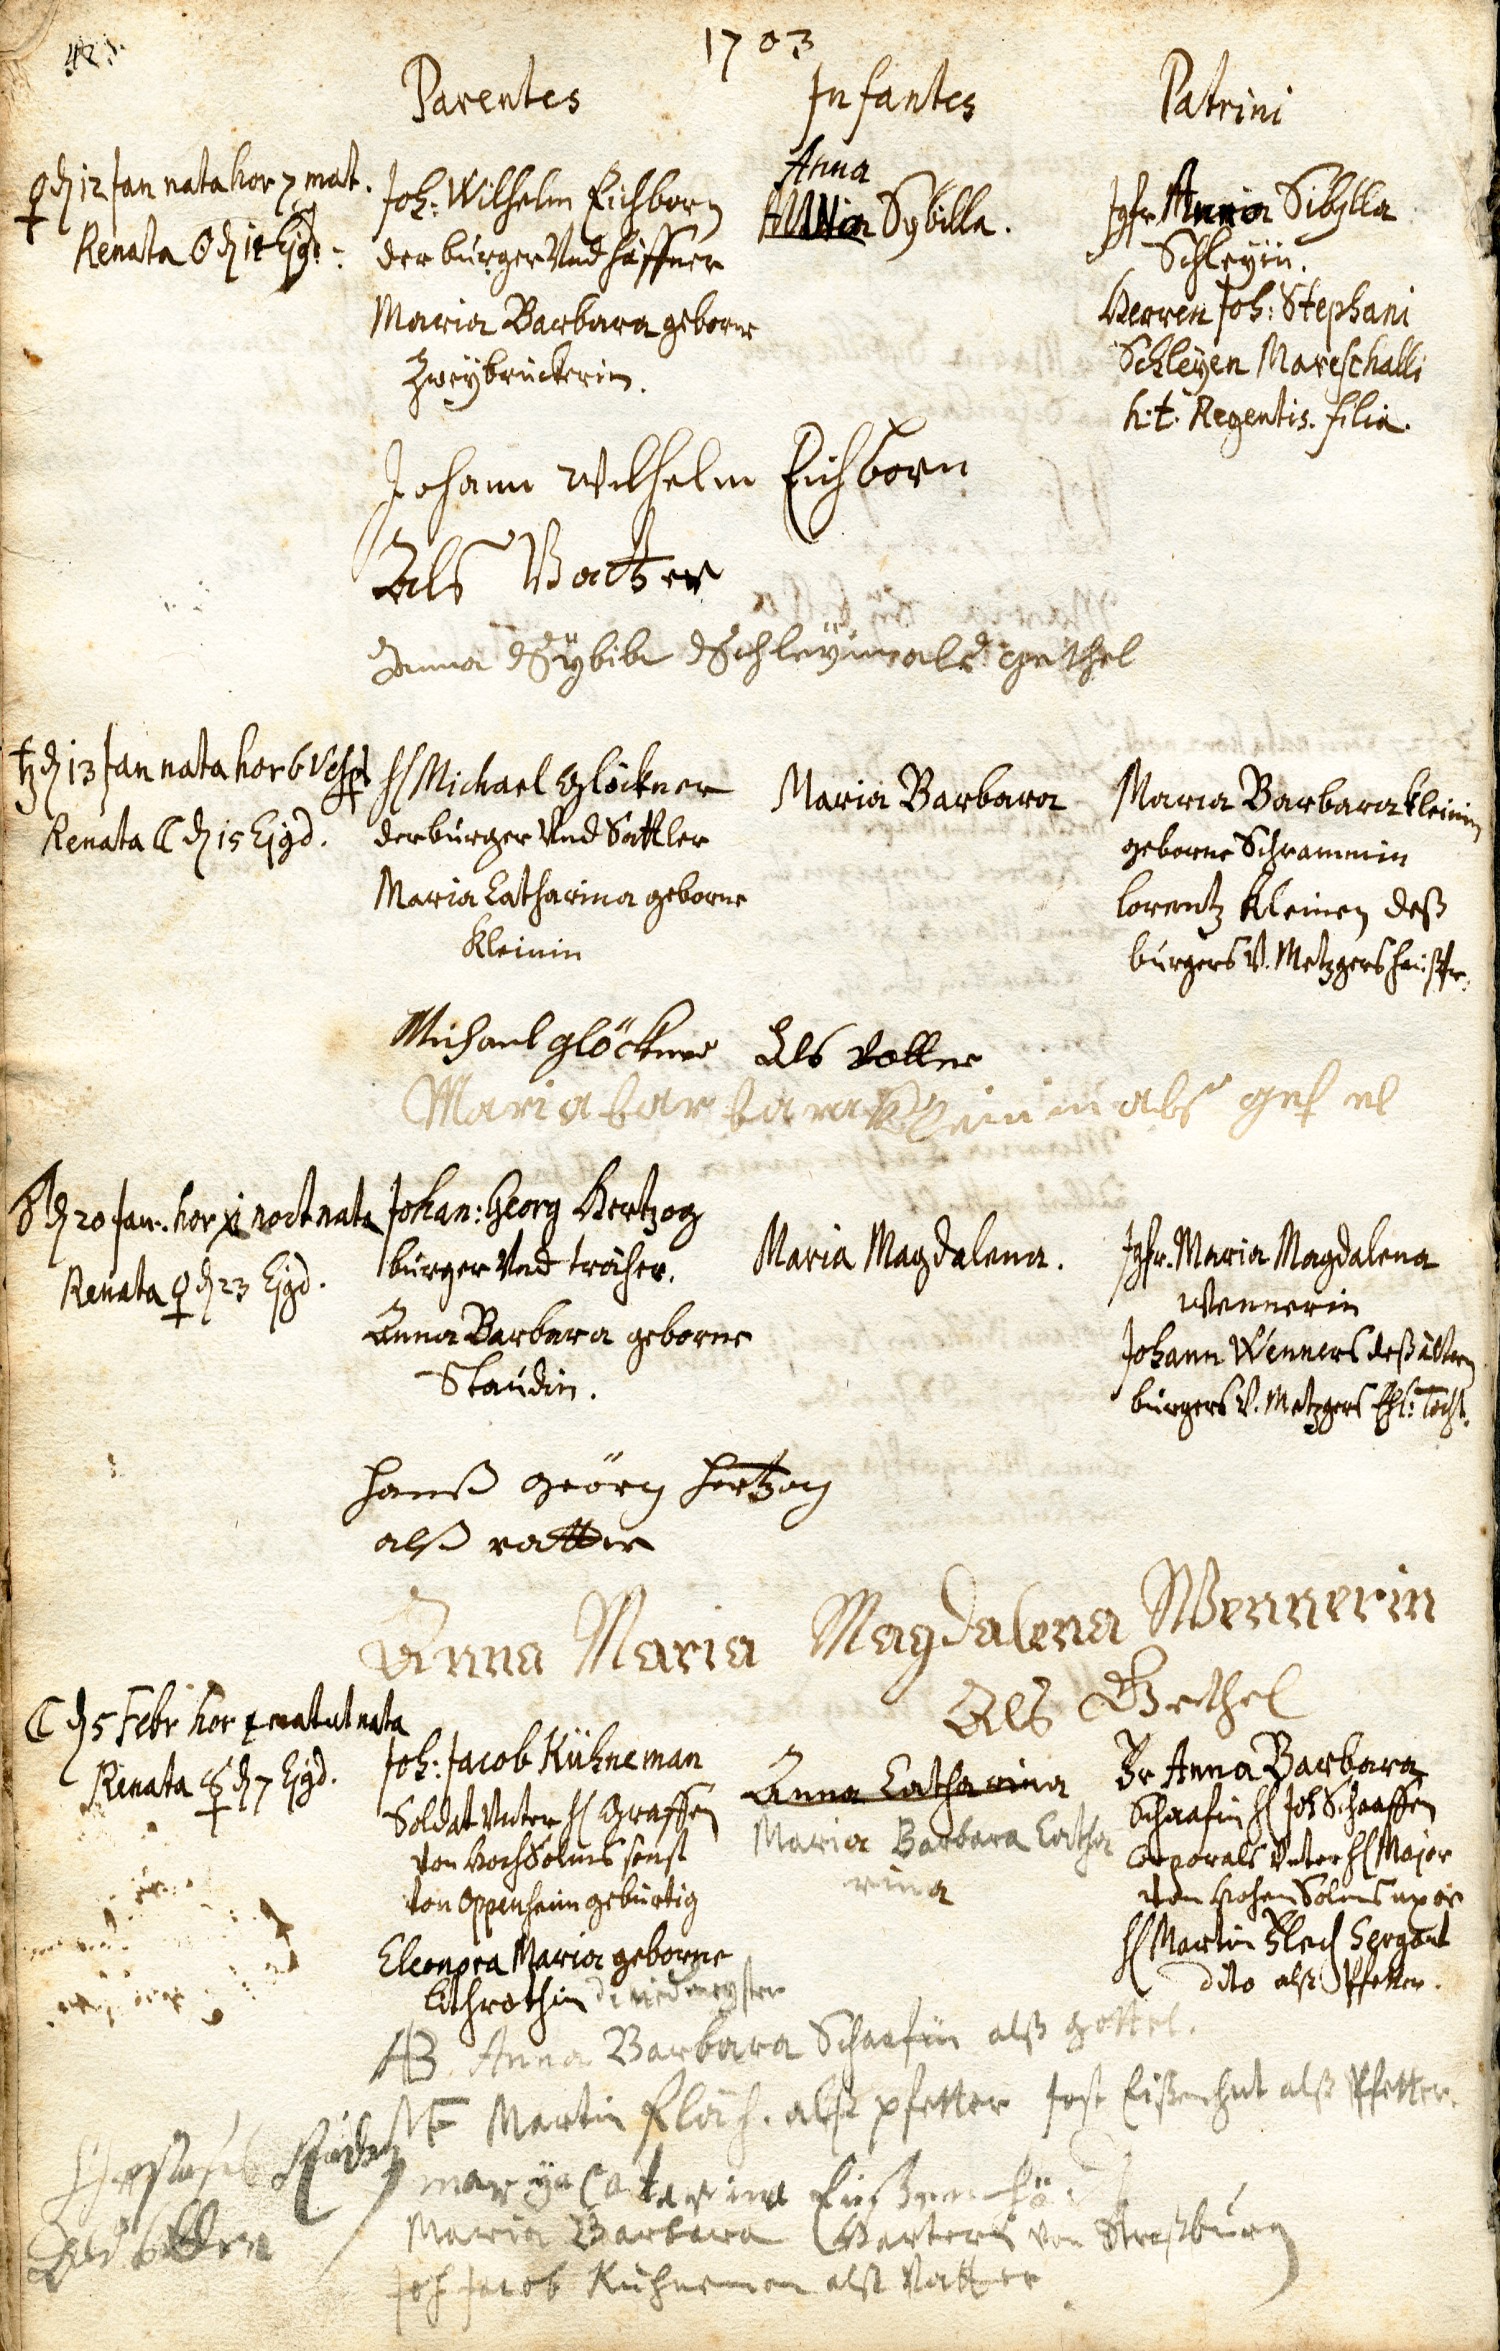 1703
Parentes Infantes Patrini
♀ d 12 Jan nata hor 7 mat.
Renata d 14 Ejgd.
Joh: Wilhelm Eichborn
der burger Und häffner
Maria Barbara geborne
Zweÿbrückerin.
Anna
Sybilla.
Jgfr. Anna Sibylla
Schleÿin.
Herren Joh: Stephani
Schleÿen Mareschalli
h: t: Regentis. filia.
Johann Wilhelm Eichborn
Als Vatter
Anna Sÿbila Schleÿin als gethel
♄ d 13 Jan nata hor 6 Vesp
Renata ☾ d 15 Ejgd.
H Michael Glöckner
der burger Und Sattler
Maria Catharina geborne
Kleinin
Maria Barbara
Maria Barbara Kleinin
geborne Schrammin
Lorentz Kleinen deß
burgers V. Metzgers haußfr.
Michael glöckner Als Vatter
Maria barbara Kleinin als
d 20 Jan. hor xi noct nata
Renata d 23 Ejgd.
Johan: Georg Hertzog
burger Und
Anna Barbara geborne
Staudin.
Maria Magdalena.
Jgfr. Maria Magdalena
Wennerin
Johann Wenners deß ältern
burgers V. Metzgers Ehl: Tocht.
Hanß Geörg Hertzog
alß vatter
Anna Maria Magdalena Wennerin
Als Gethel
☾ d 5 Febr hor matut nata
Renata ☿ d 7 Ejgd.
Joh: Jacob Kühneman
Soldat Unter H Graffen
von Hochsolms sonst
von Oppenheim gebürtig
Eleonora Maria geborne
Anna Catharina
Maria Barbara Catha
rina
Fr Anna Barbara
Schaafin H Joh Schaaffen
Corporals Unter H Major
von Hohen Solms uxor
H Martin Flach Sergant
dito alß Pfetter.
AB. Anna Barbara Schaafin alß gottel.
MF Martin Flach. alß pfetter Jost Eißenhut alß Pfetter.
marÿa Catarina
Maria Barbara von Straßburg
Joh Jacob Kühneman alß Vatter